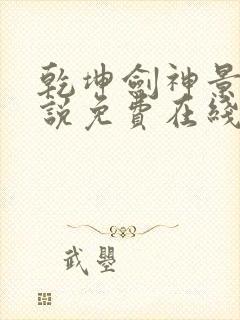 乾坤劍神景
説免費在綫
武曌